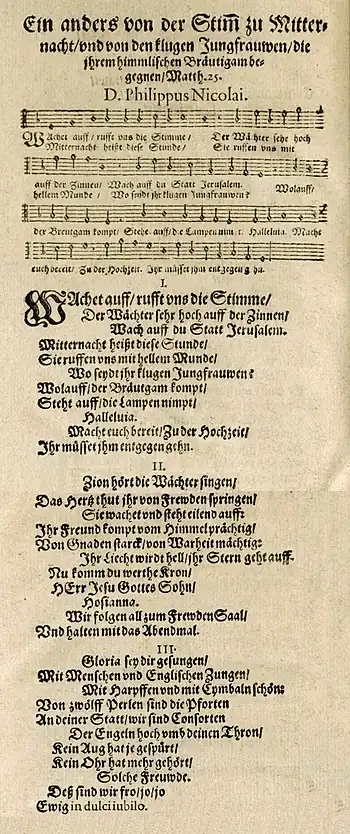 Ein anders von der Stim̃ zu Mitter-
nacht/vnd von den klugen Jungfrauwen/die
jhrem himmlischen Bräutigam be-
gegnen/Matth. 25.
D. Philippus Nicolai.
WAchet auff/ rufft vns die Stimme/ Der Wächter sehr hoch
Mitternacht heißt diese Stunde/ Sie ruffen vns mit
auff der Zinnen/ Wach auff du Statt Jerusalem. Wolauff/
hellem Munde/ Wo seydt jhr klugen Jungfrauwen?
der Breutgam kompt/ Steht auff/die Lampen nimpt. Halleluia. Macht
euch bereit/ Zu der Hochzeit. Jhr müsset jhm entgegen gehn.
I.
WAchet auff/ rufft vns die Stimme/
Der Wächter sehr hoch auff der Zinnen/
Wach auff du Statt Jerusalem.
Mitternacht heißt diese Stunde/
Sie ruffen vns mit hellem Munde/
Wo seydt jhr klugen Jungfrauwen?
Wolauff/der Bräutgam kompt/
Steht auff/die Lampen nimpt/
Halleluia.
Macht euch bereit/Zu der Hochzeit/
Jhr müsset jhm entgegen gehn.
II.
Zion hört die Wächter singen/
Das Hertz thut jhr von Frewden springen/
Sie wachet vnd steht eilend auff:
Jhr Freund kompt vom Himmel prächtig/
Von Gnaden starck/von Warheit mächtig:
Jhr Liecht wirdt hell/jhr Stern geht auff.
Nu komm du werthe Kron/
HErr Jesu Gottes Sohn/
Hosianna.
Wir folgen all zum Frewden Saal/
Vnd halten mit das Abendmal.
III.
Gloria sey dir gesungen/
Mit Menschen vnd Englischen Zungen/
Mit Harpffen vnd mit Cymbaln schön:
Von zwölff Perlen sind die Pforten
An deiner Statt/wir sind Consorten
Der Engeln hoch vmb deinen Thron/
Kein Aug hat je gespürt/
Kein Ohr hat mehr gehört/
Solche Freuwde.
Deß sind wir fro/jo/jo
Ewig in dulci iubilo.